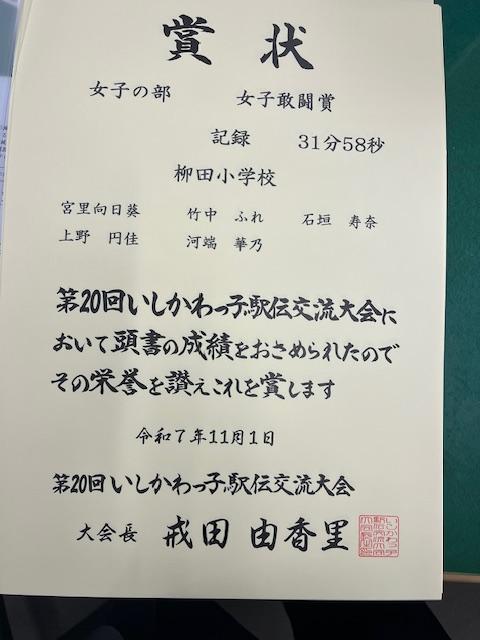 賞状
女子の部 女子敢闘賞
記録 31分58秒
柳田小学校
宮里向日葵 竹中 ふれ 石垣 寿奈
上野 円佳 河端 華乃
第20回いしかわっ子駅伝交流大会に
おいて頭書の成績をおさめられたので
その栄誉を讃えこれを賞します
令和7年11月1日
第20回いしかわっ子駅伝交流大会
大会長 戒田 由香里